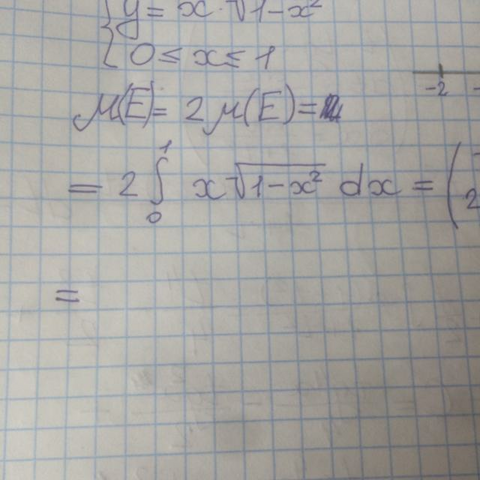 y = x · √1-x²
0 ≤ x ≤ 1
-2
μ(E) = 2μ(E) =
= 2 ∫₀¹ x √1-x² dx = (
2
=